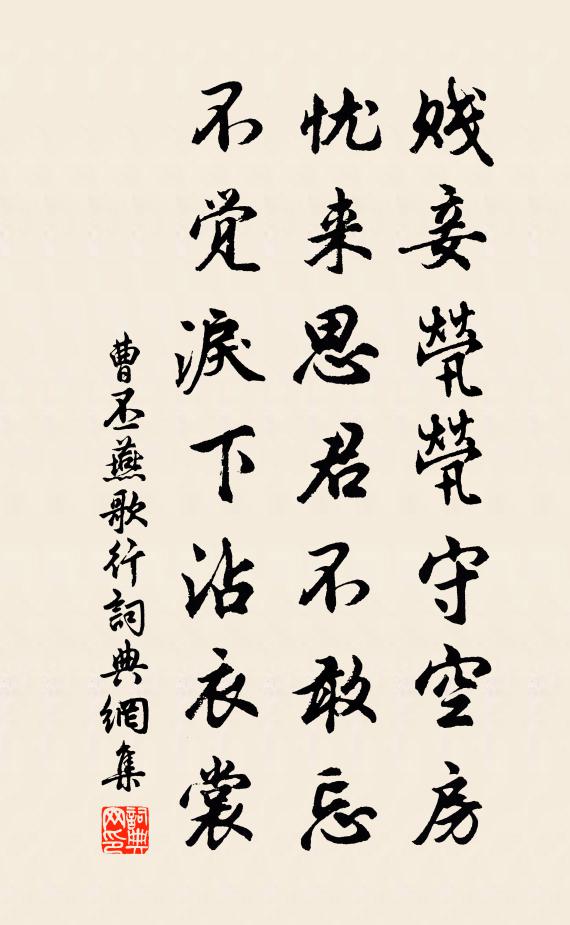 贱妾茕茕守空房
忧来思君不敢忘
不觉淚下沾衣裳
曹丕燕歌行詞典網集
詞典网印